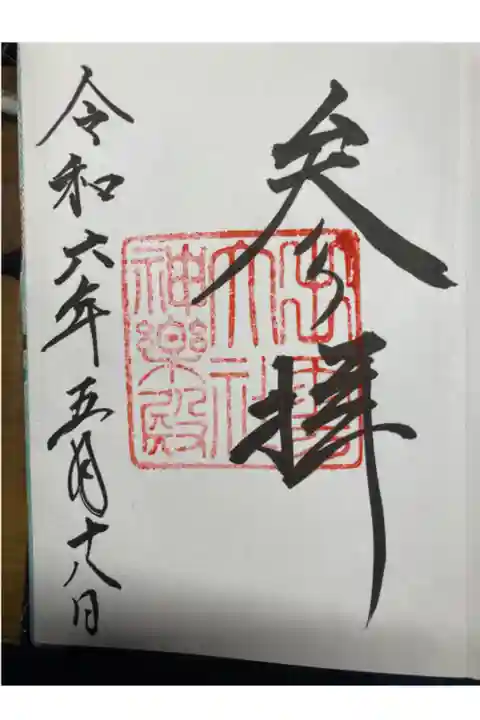 参拝
出雲
大社
神楽殿
令和六年五月十八日